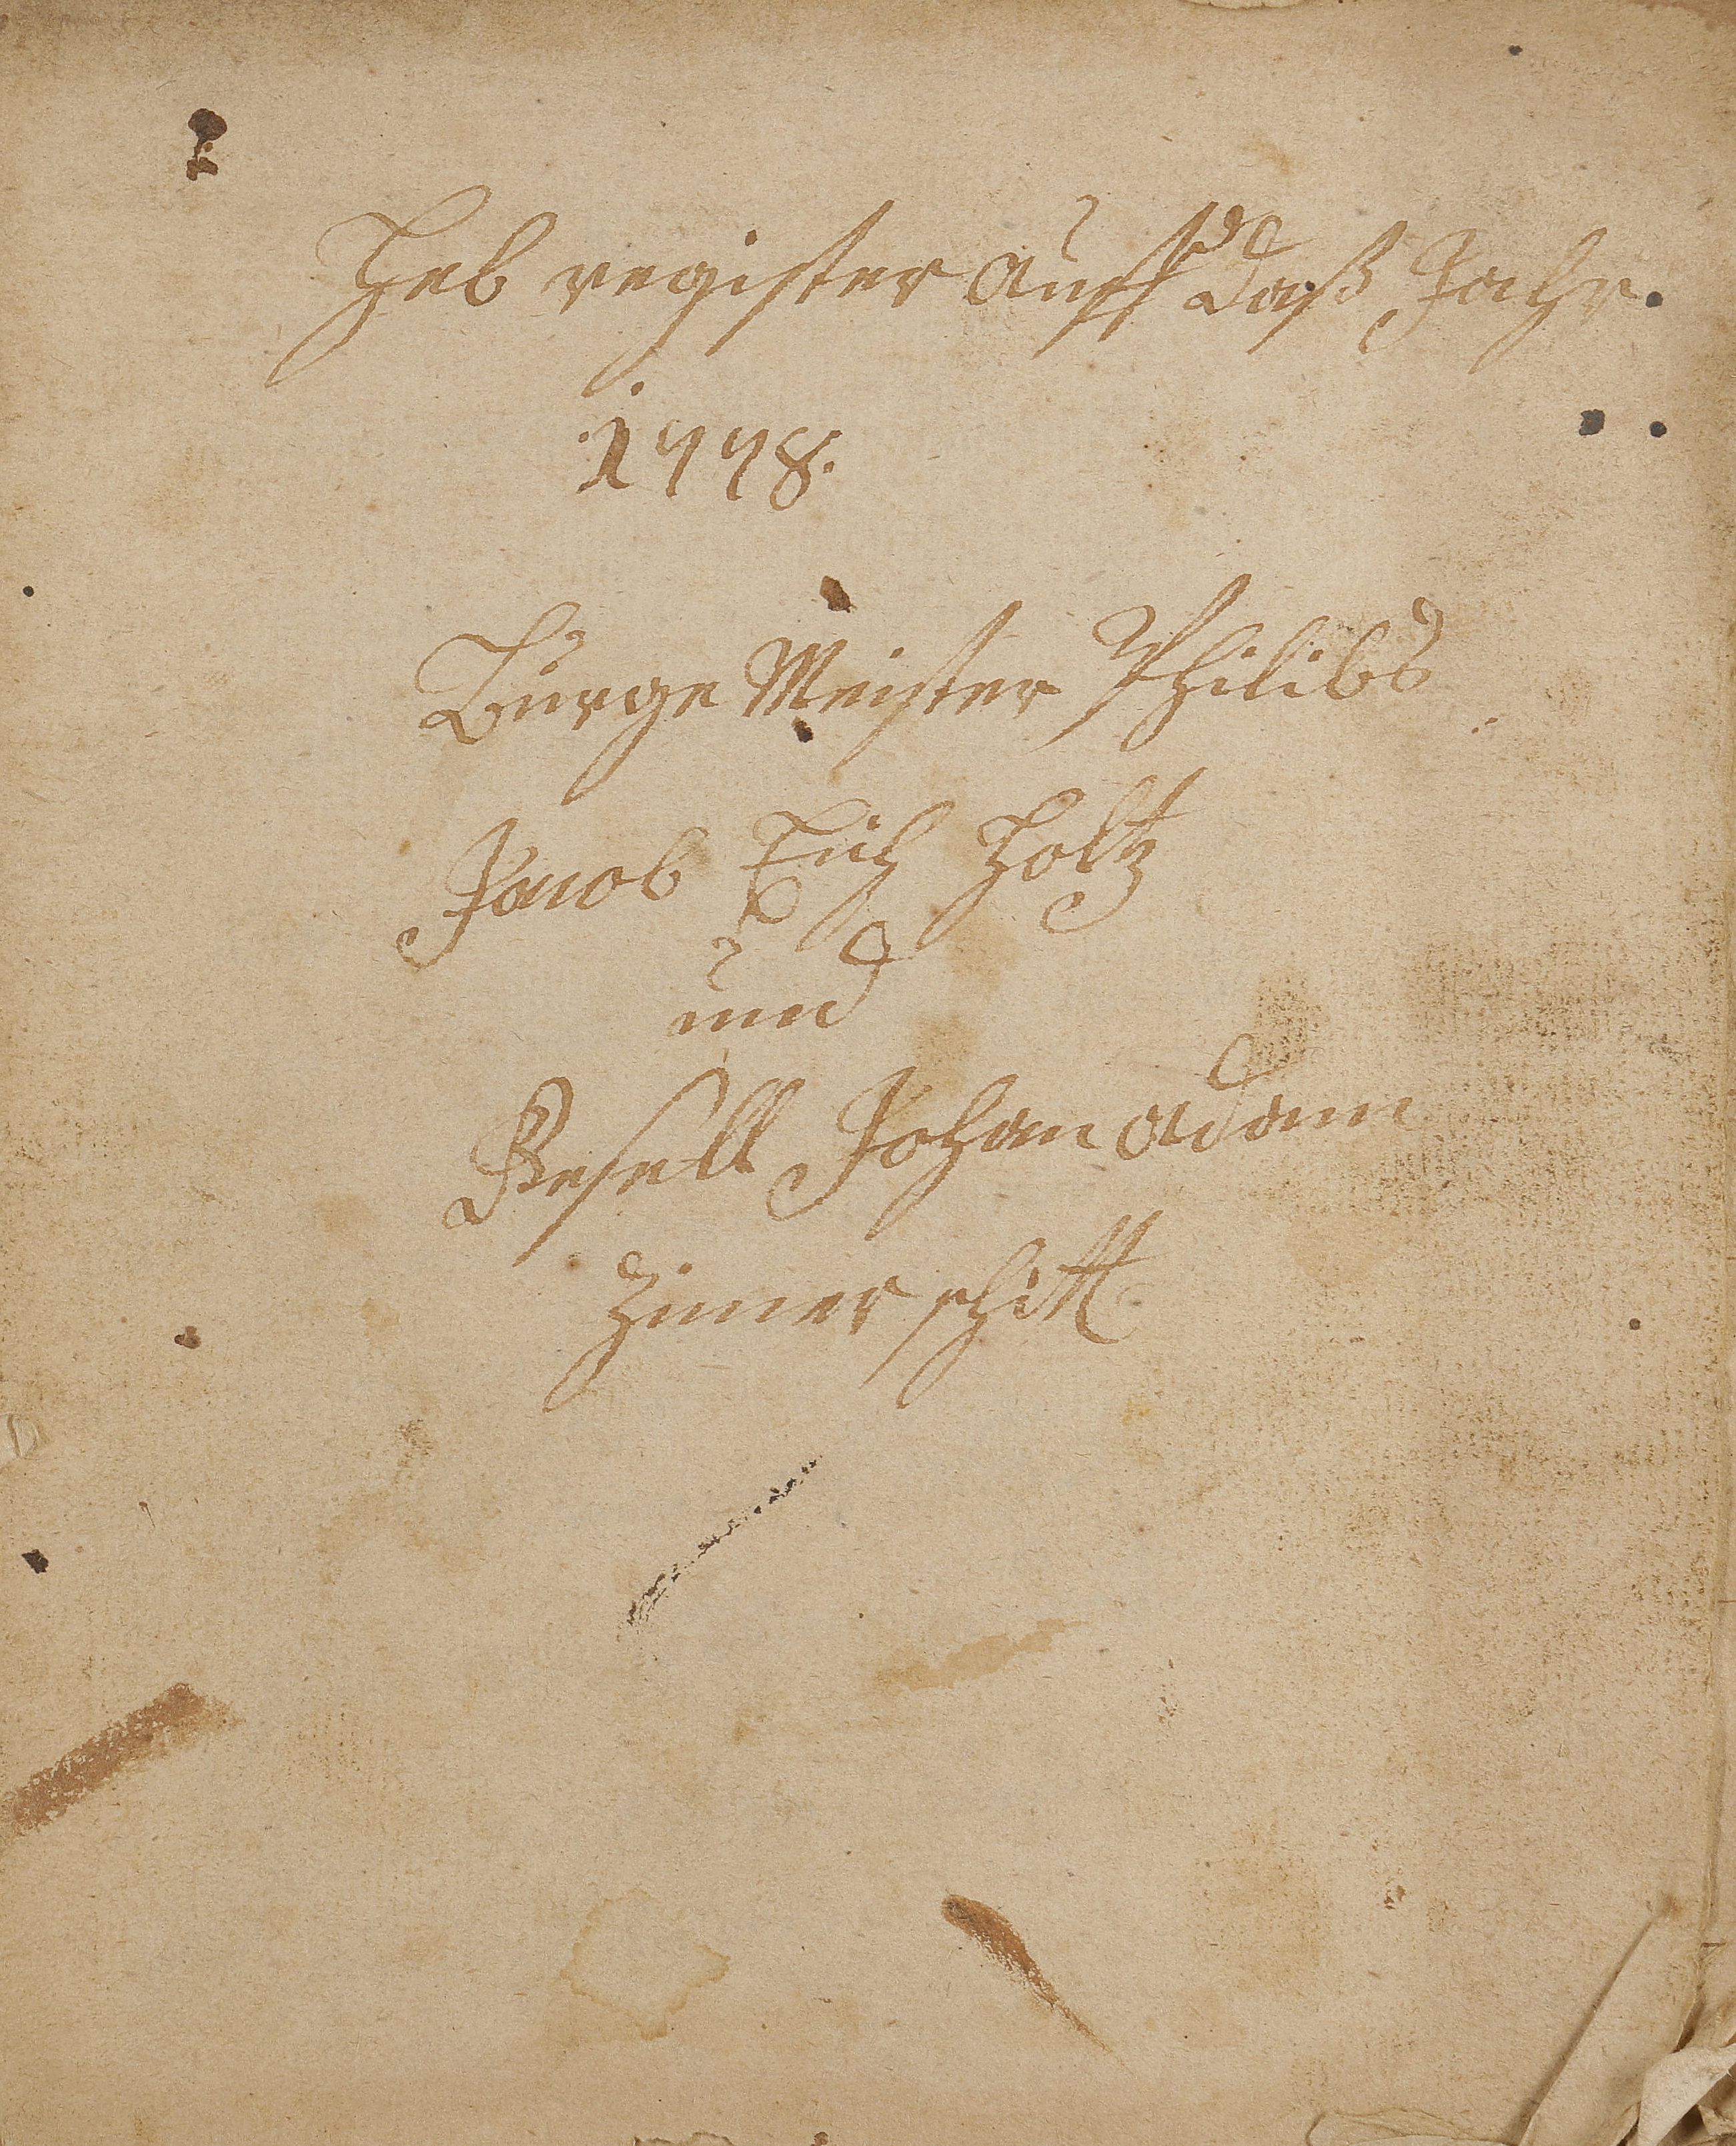 Heb register auff daß Jahr.
1778.
Burge Meister Philibs
Jacob Eich Holtz
und
Gesell Johan adam
Zimer schitt